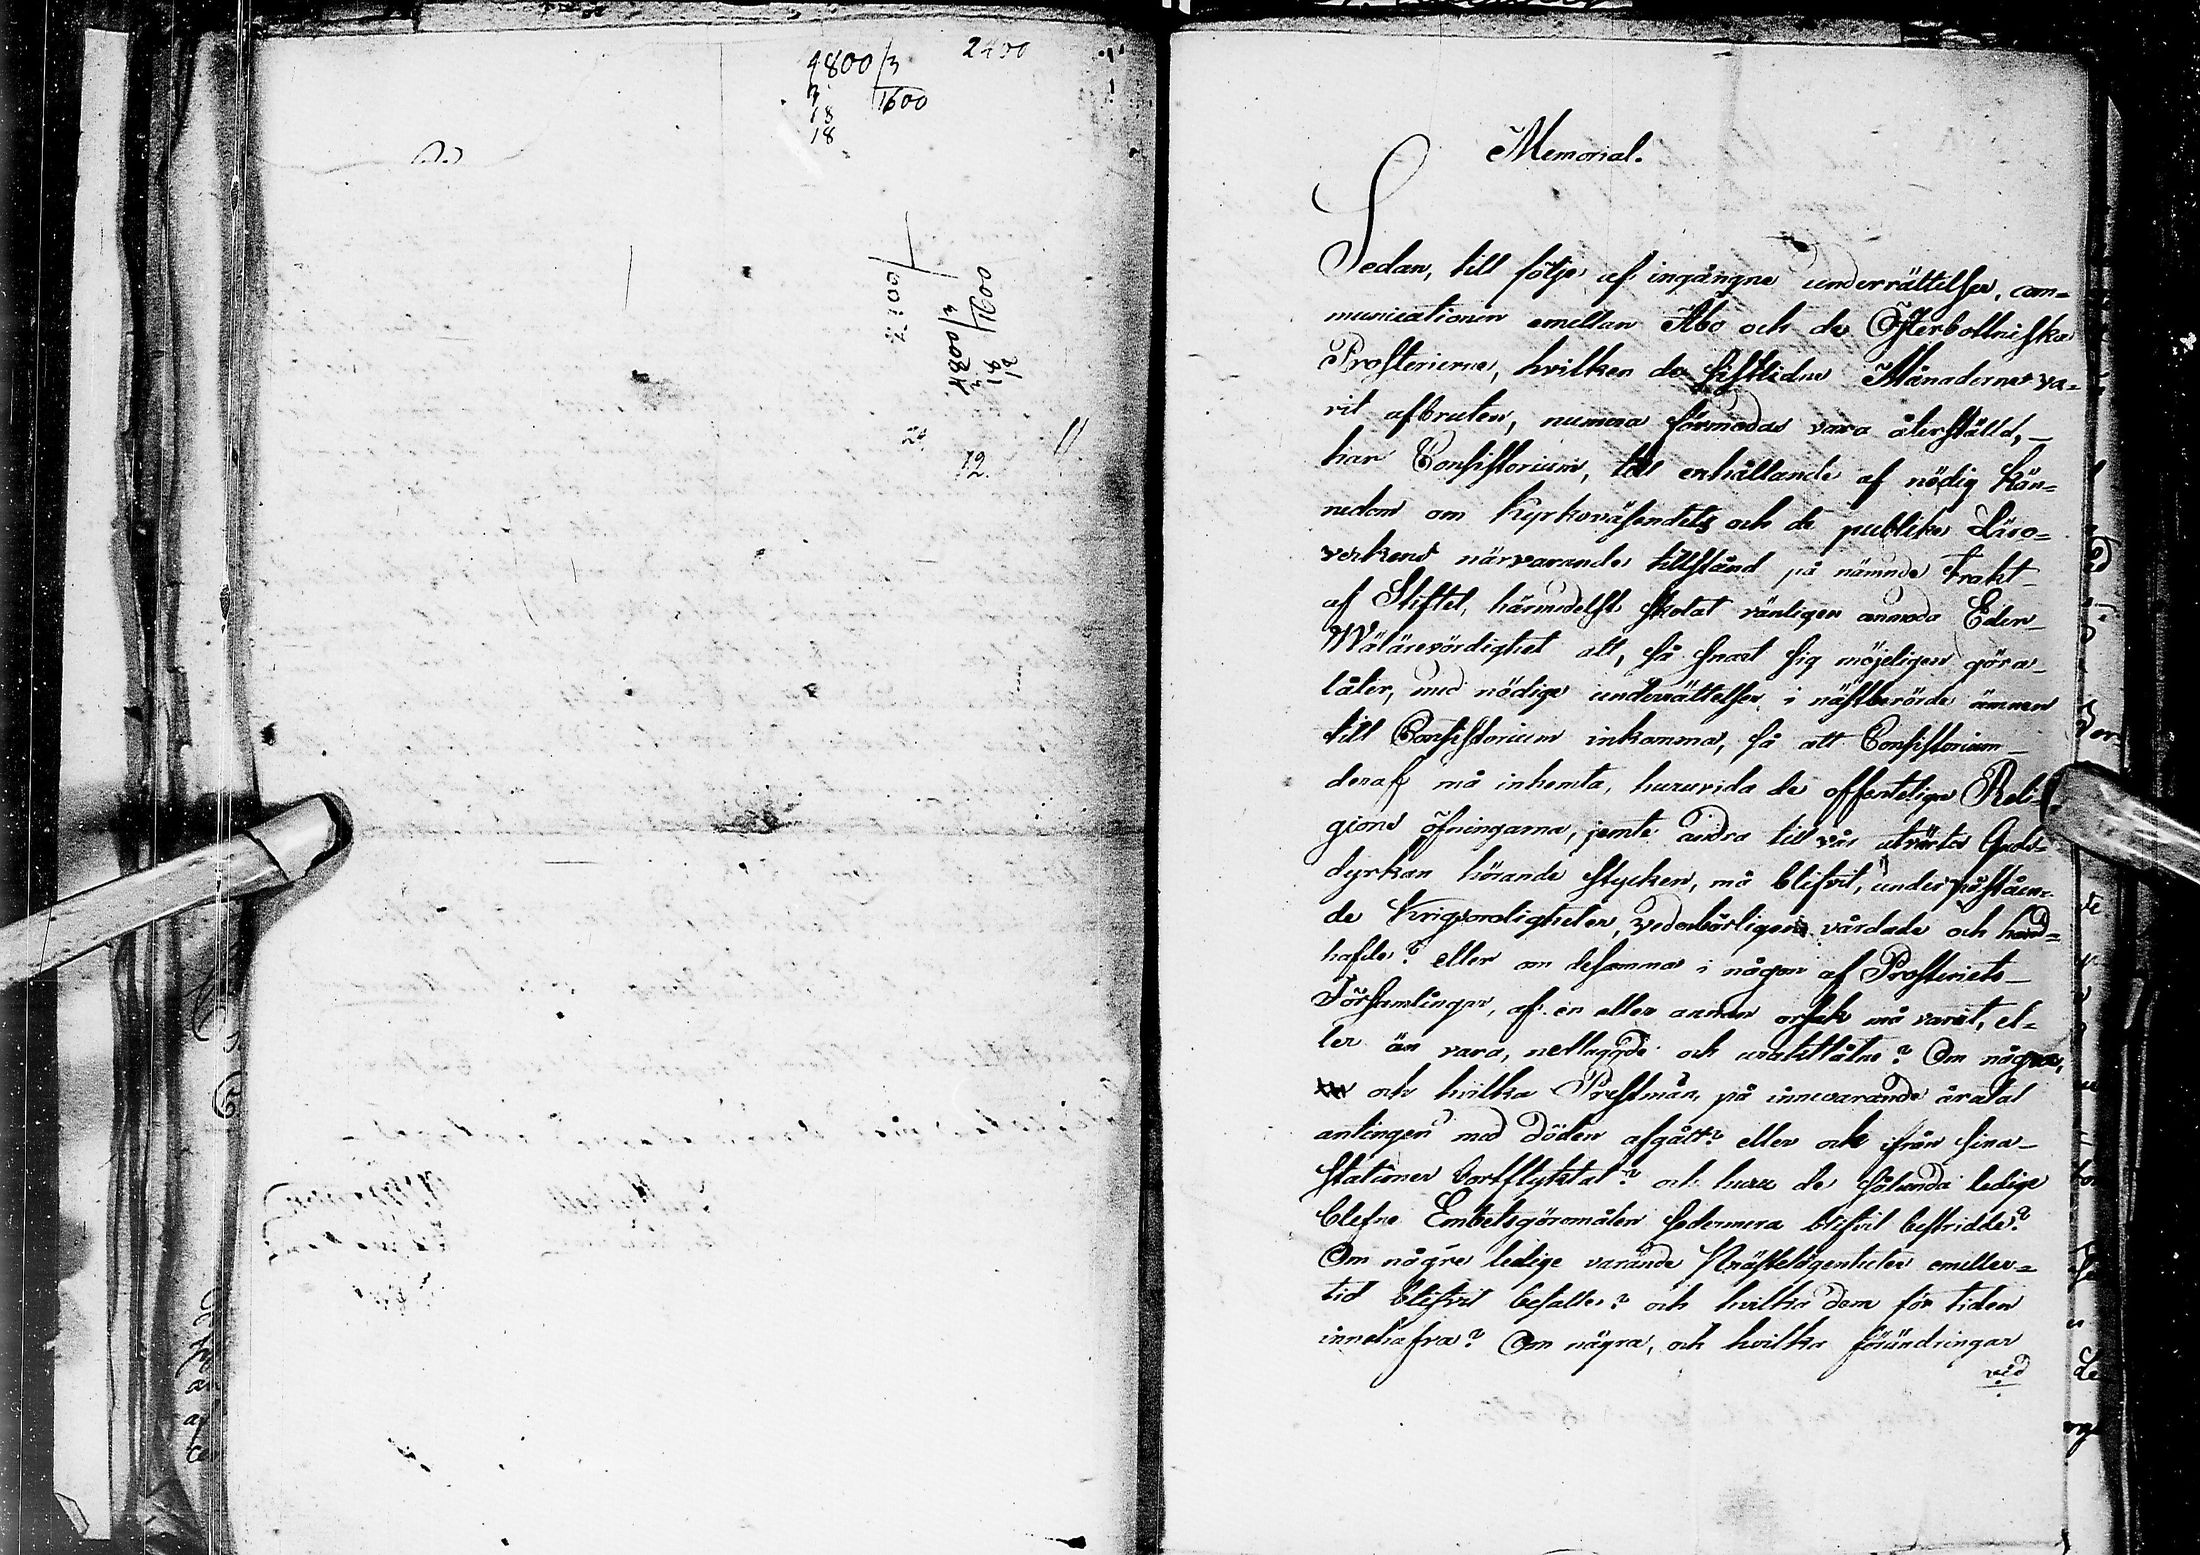 4800/3 2400
3 1600
18
18
2400
4800/3
3 1600
18
12
24
12
11
Memorial.
Sedan, till följe af ingångne underrättelser, com=
municationen emellan Åbo och de Österbottniska
Prosterierne, hvilken de sistledne Månaderne va=
rit afbruten, numera förmodas vara återställd,
har Consistorium, till erhållande af nödig kän=
nedom om Kyrkoväsendets och de publike Läro=
verkens närvarande tillstånd på nämnde trakt
af Stiftet, härmedelst skolat vänligen anmoda Eder
Wälärevördighet att, så snart sig möjeligen göra
låter, med nödige underrättelser i nästberörde ämnen
till Consistorium inkomma, så att Consistorium
deraf må inhemta, huruvida de offentelige Reli
gions öfningarna, jemte andra till vår utvärtes Guds=
dyrkan hörande stycken, må blifvit, under påståen=
de Krigsoroligheter, vederbörligen vårdade och hand=
hafde? eller om desamma i någon af Prosteriets
Församlingar, af en eller annan orsak må varit, el=
ler än vara, nedlaggde och uraktlåtne? Om några,
och hvilka Prestmän, på innevarande åratal
antingen med döden afgått? eller ock ifrån sina
Stationer bortflyktat? och huru de sålunda ledige
blefne Embetsgöromålen sedermera blifvit bestridde?
Om någre ledige varande Prästelägenheter emiller=
tid blifvit besatte? och hvilka dem för tiden
innehafva? Om några, och hvilka förändringar
vid